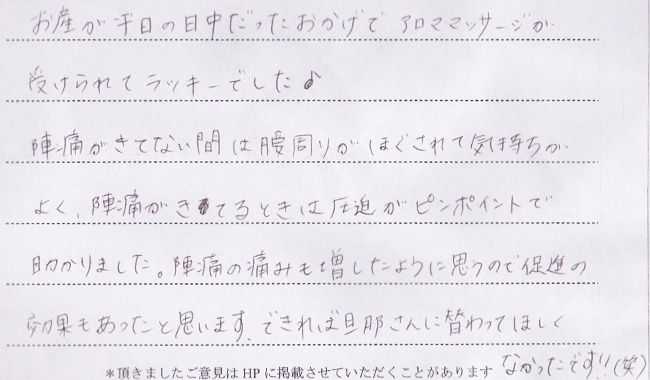 お産が平日の日中だったおかげでアロママッサージが
受けられてラッキーでした♪
陣痛がきてない間は腰周りがほぐされて気持ちが
よく、陣痛がきてるときは圧迫がピンポイントで
助かりました。陣痛の痛みも増したように思うので促進の
効果もあったと思います。できれば旦那さんに替わってほしく
なかったです!!(笑)
＊頂きましたご意見はHPに掲載させていただくことがあります